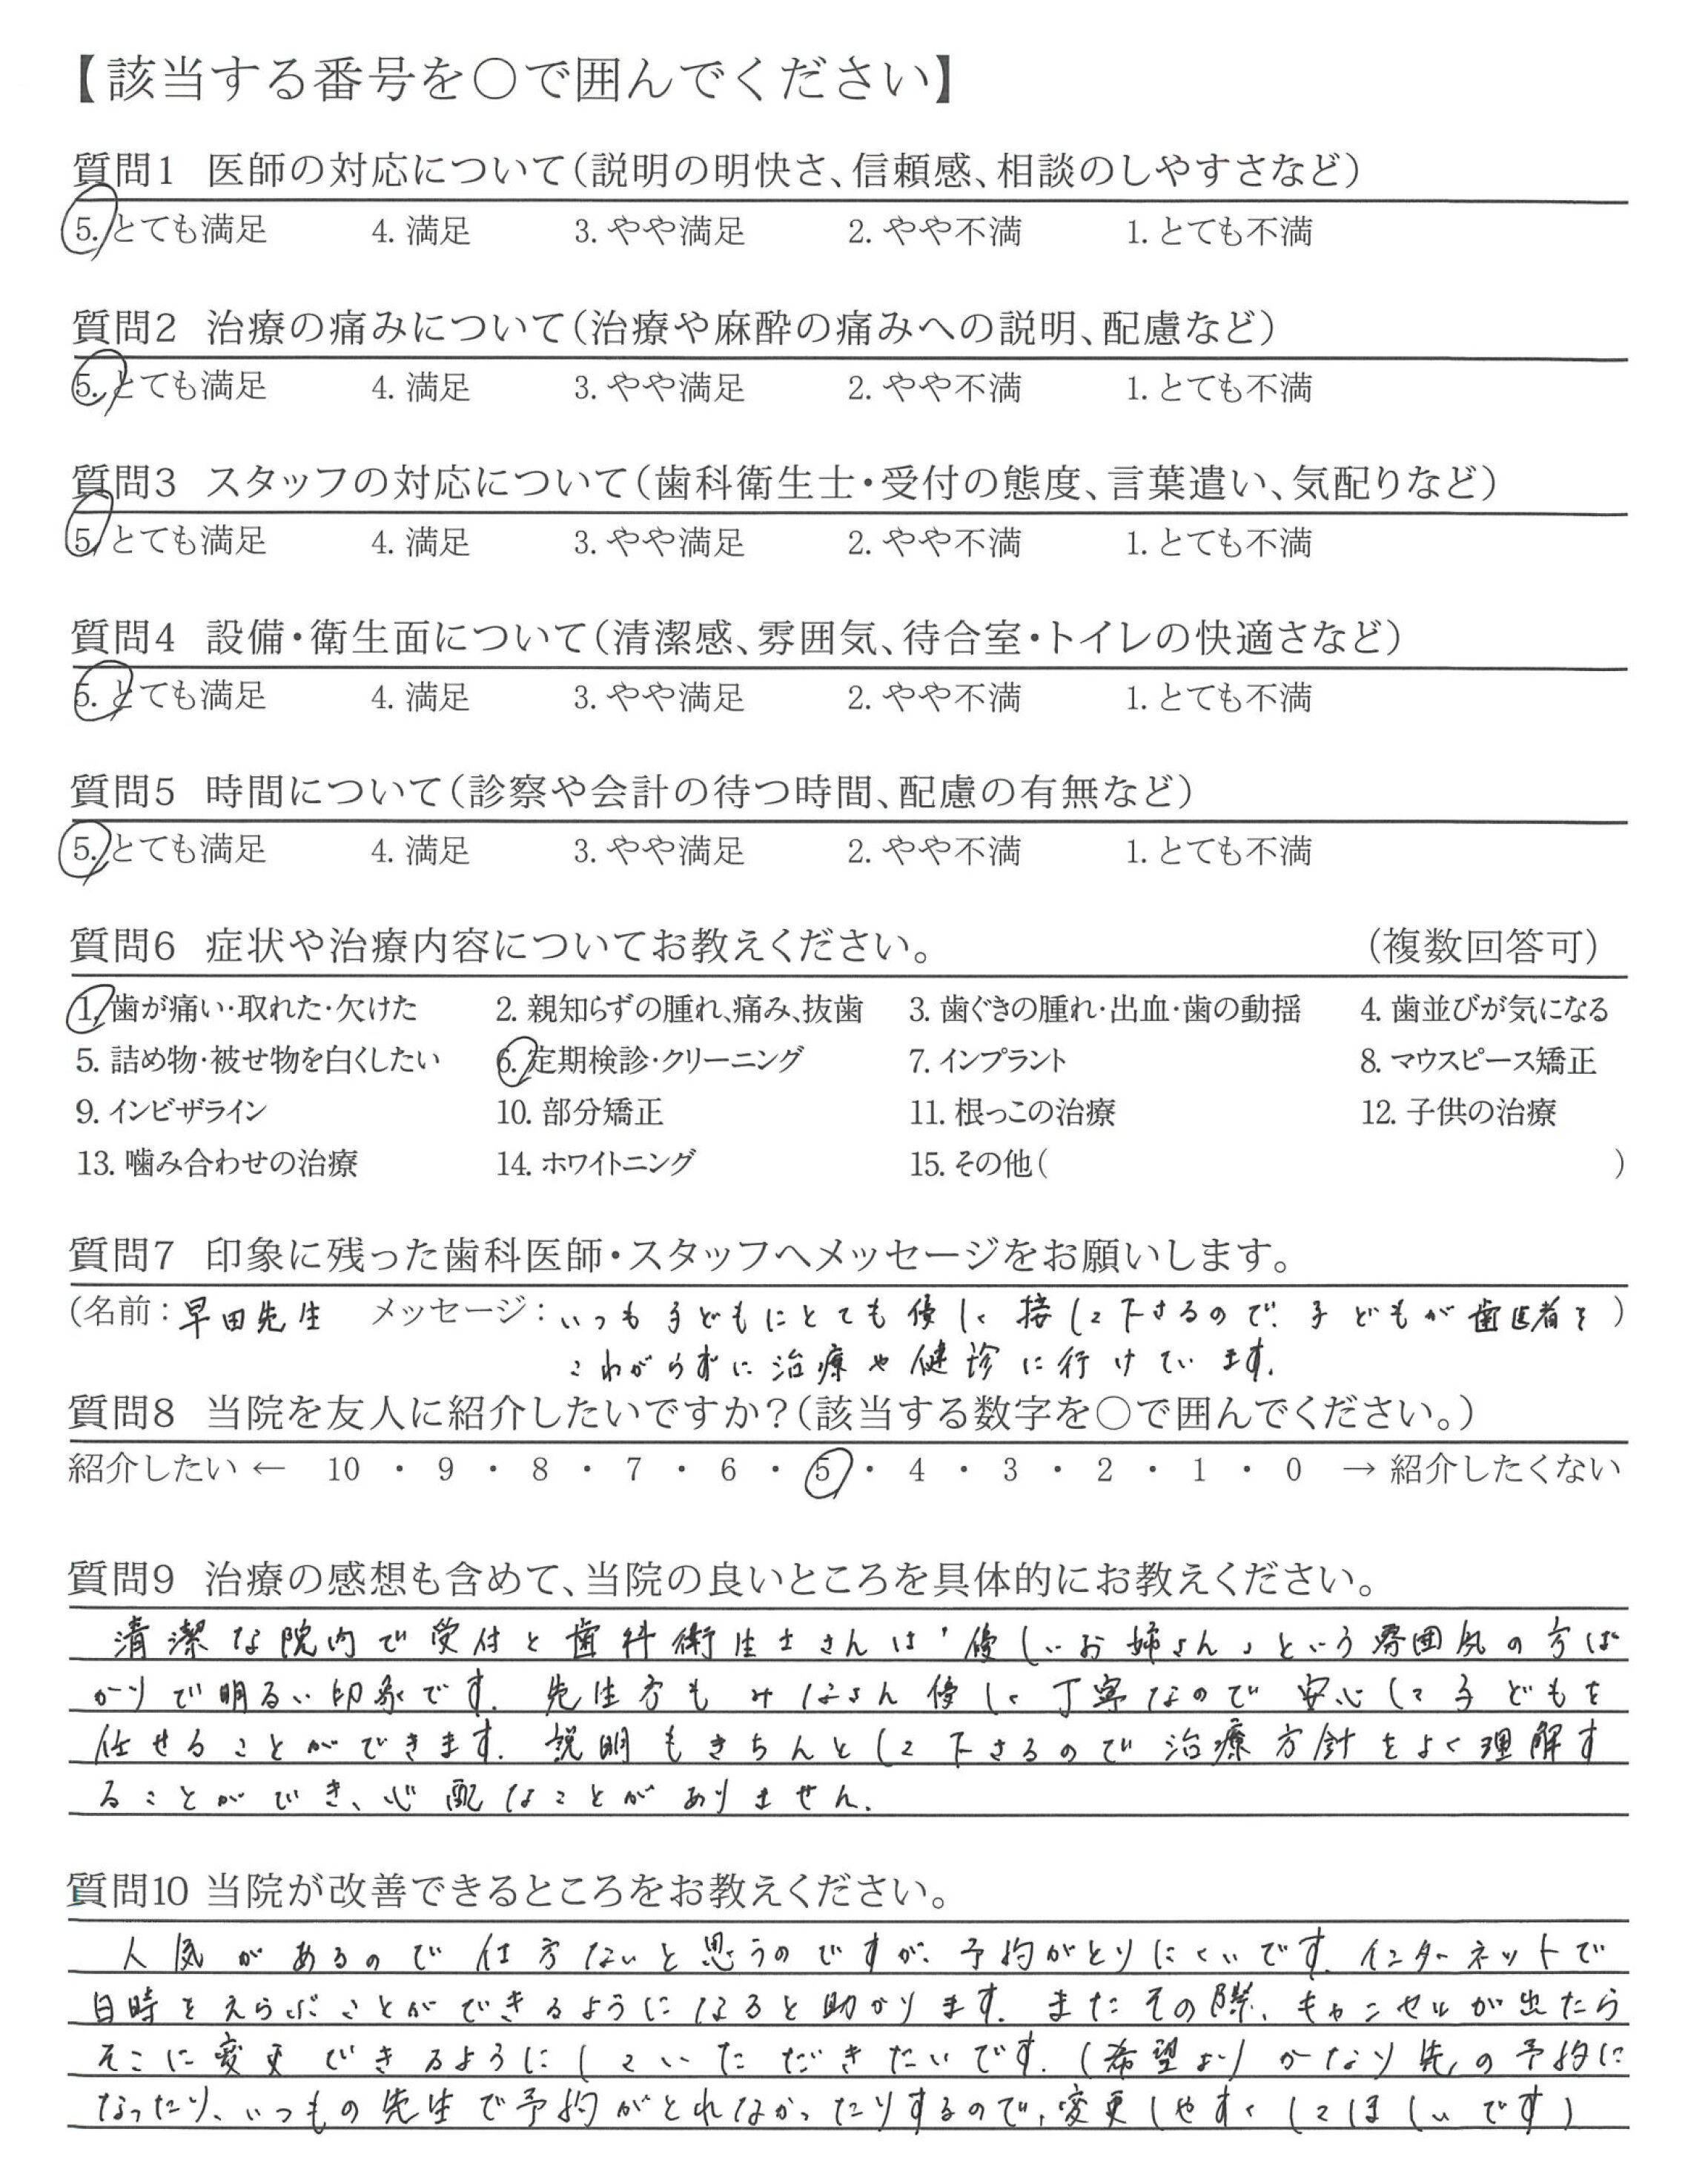 【該当する番号を〇で囲んでください】
質問1 医師の対応について(説明の明快さ、信頼感、相談のしやすさなど)
5. とても満足 4. 満足 3. やや満足 2. やや不満 1. とても不満
質問2 治療の痛みについて(治療や麻酔の痛みへの説明、配慮など)
5. とても満足 4. 満足 3. やや満足 2. やや不満 1. とても不満
質問3 スタッフの対応について(歯科衛生士・受付の態度、言葉遣い、気配りなど)
5. とても満足 4. 満足 3. やや満足 2. やや不満 1. とても不満
質問4 設備・衛生面について(清潔感、雰囲気、待合室・トイレの快適さなど)
5. とても満足 4. 満足 3. やや満足 2. やや不満 1. とても不満
質問5 時間について(診察や会計の待つ時間、配慮の有無など)
5. とても満足 4. 満足 3. やや満足 2. やや不満 1. とても不満
質問6 症状や治療内容についてお教えください。 (複数回答可)
1. 歯が痛い・取れた・欠けた 2. 親知らずの腫れ、痛み、抜歯 3. 歯ぐきの腫れ・出血・歯の動揺 4. 歯並びが気になる
5. 詰め物・被せ物を白くしたい 6. 定期検診・クリーニング 7. インプラント 8. マウスピース矯正
9. インビザライン 10. 部分矯正 11. 根っこの治療 12. 子供の治療
13. 噛み合わせの治療 14. ホワイトニング 15. その他( )
質問7 印象に残った歯科医師・スタッフへメッセージをお願いします。
(名前:早田先生 メッセージ:いつも子どもにとても優しく接して下さるので、子どもが歯医者を)
こわがらずに治療や健診に行けています。
質問8 当院を友人に紹介したいですか?(該当する数字を〇で囲んでください。)
紹介したい ← 10 ・ 9 ・ 8 ・ 7 ・ 6 ・ 5 ・ 4 ・ 3 ・ 2 ・ 1 ・ 0 → 紹介したくない
質問9 治療の感想も含めて、当院の良いところを具体的にお教えください。
清潔な院内で受付と歯科衛生士さんは「優しいお姉さん」という雰囲気の方ば
かりで明るい印象です。先生方もみなさん優しく丁寧なので安心して子どもを
任せることができます。説明もきちんとして下さるので治療方針をよく理解す
ることができ、心配なことがありません。
質問10 当院が改善できるところをお教えください。
人気があるので仕方ないと思うのですが、予約がとりにくいです。インターネットで
日時をえらぶことができるようになると助かります。またその際、キャンセルが出たら
そこに変更できるようにしていただきたいです。(希望よりかなり先の予約に
なったり、いつもの先生で予約がとれなかったりするので、変更しやすくしてほしいです)